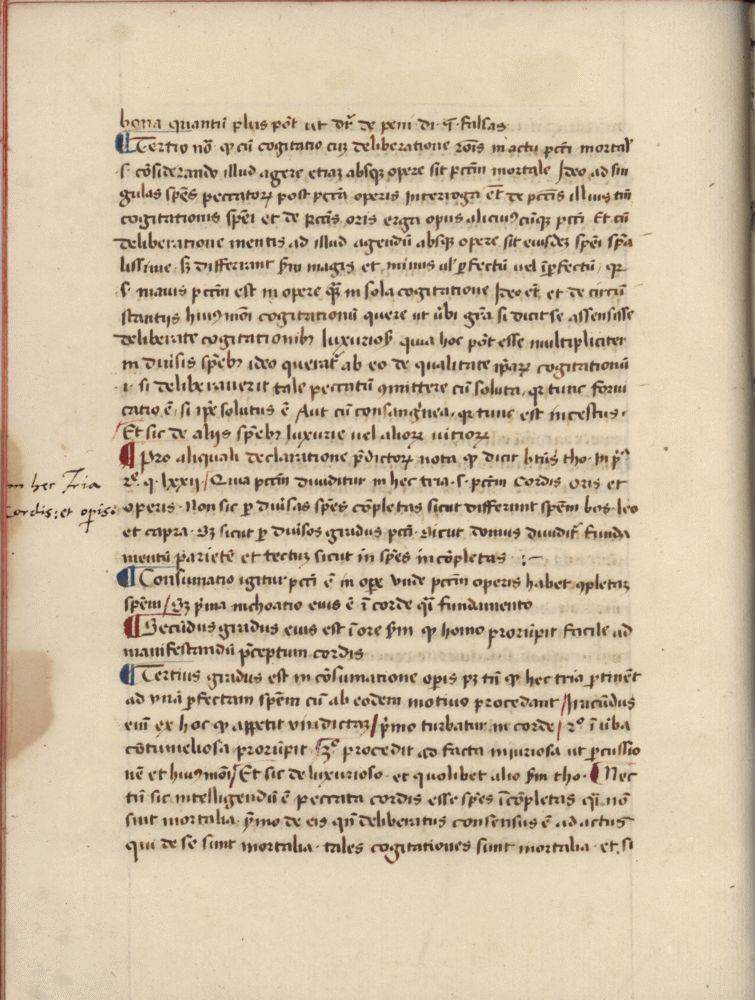 bona quantū plus pōt ut dr̄ de peni · di · q̄ · falsas
Tertio nō ꝙ cū cogitatio cuꝫ deliberatione rōis in actu pccī mortal'
·s· cōsiderando illud agere etiaꝫ absqꝫ opere sit pctm̄ mortale Ideo ad sin
gulas spēs peccatoꝝ post pctā operis interroga et̄ de pctīs illius tm̄
cogitationis spēi et de pctīs oris erga opus alicuiꝰ cūqꝫ pctī Et cū
deliberatione mentis ad illud agendū absqꝫ opere sit eiusdeꝫ spēi spā
lissime · sꝫ differant fm̄ magis et minus ul' ꝑfectū uel īꝑfectū · qꝛ
·s· maius pctm̄ est in opere qꝫ in sola cogitatione Ideo et̄ et de circū
stantijs huiꝰmōi cogitationū quere ut ubi grā si dicit se assensisse
deliberate cogitationibꝫ luxuriosꝭ quia hoc pōt esse multipliciter
in diuisis spēbꝫ ideo querat̄ ab eo de qualitate ip̄aꝝ cogitationū
·i· si deliberauerit tale peccatū ꝯmittere cū soluta · qꝛ tunc forni
catio ē · si ip̄e solutus ē Aut cū consang'nea · qꝛ tunc est incestus ·
Et sic de alijs spēbꝫ luxurie uel alioꝝ uitioꝝ
Pro aliquali declaratione p̄dictoꝝ nota ꝙ dicit btūs tho · in pᵃ
2ᵉ · q · lxxij / Quia pctm̄ diuiditur in hec tria · s · pctm̄ cordis oris et
in hec Tria
cordis: et opis:
operis · Non sic ꝑ diuisas spēs cōpletas sicut differunt spēm bos leo
et capra · Sꝫ sicut ꝑ diuisos gradus pctī · sicut domus diuidit̄ funda
mentū parietē et tectuꝫ sicut in spēs incōpletas :~
Consumatio igitur pctī ē in opē unde pctm̄ operis habet ꝯpletaꝫ
spēm / Sꝫ p̄ma inchoatio eius ē ī corde q̄i fundamento
Secūdus gradus eius est ī ore fm̄ ꝙ homo prorūpit facile ad
manifestandū p̄ceptum cordis
Tertius gradus est in cōsumatione opis pꝫ tn̄ ꝙ hec tria ꝑtinēt
ad unā ꝑfectam spēm cū ab eodem motiuo procedant / Iracūdus
eni̅ ex hoc ꝙ appetit uindictaꝫ / p̄mo turbatur in corde / 2° ī ūba
cōtumeliosa prorūpit · 3° procedit ad facta iniuriosa ut ꝑcussio
nē et huiꝰmōi / Et sic de luxurioso · et quolibet alio fm̄ tho · Nec
tn̄ sic intelligendū ē peccata cordis esse spēs īcōpletas q̄i nō
sint mortalia · ymo de eis qn̄ deliberatus consensus ē ad actus
qui de se sunt mortalia · tales cogitationes sunt mortalia · et si